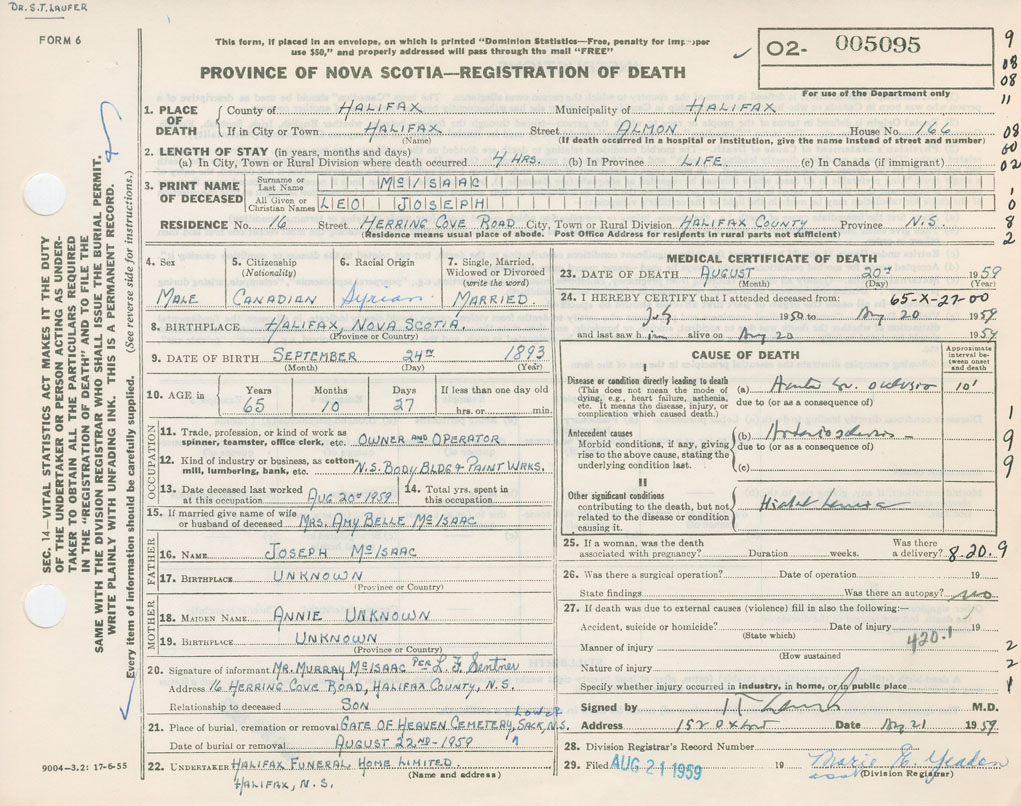 DR. S.T. LAUFER
FORM 6
This form, if placed in an envelope, on which is printed "Dominion Statistics—Free, penalty for improper
use $50," and properly addressed will pass through the mail "FREE"
PROVINCE OF NOVA SCOTIA—REGISTRATION OF DEATH
02- 005095
For use of the Department only
9
08
08
11
08
60
02
1
0
8
2
SEC. 14—VITAL STATISTICS ACT MAKES IT THE DUTY
OF THE UNDERTAKER OR PERSON ACTING AS UNDER-
TAKER TO OBTAIN ALL THE PARTICULARS REQUIRED
IN THE "REGISTRATION OF DEATH" AND TO FILE THE
SAME WITH THE DIVISION REGISTRAR WHO SHALL ISSUE THE BURIAL PERMIT.
WRITE PLAINLY WITH UNFADING INK. THIS IS A PERMANENT RECORD.
Every item of information should be carefully supplied. (See reverse side for instructions.)
1. PLACE OF DEATH
County of HALIFAX Municipality of HALIFAX
If in City or Town HALIFAX Street ALMON House No. 166
(Name) (If death occurred in a hospital or institution, give the name instead of street and number)
2. LENGTH OF STAY (in years, months and days)
(a) In City, Town or Rural Division where death occurred 4 HRS. (b) In Province LIFE (c) In Canada (if immigrant)
3. PRINT NAME OF DECEASED
Surname or Last Name McISAAC
All Given or Christian Names LEO JOSEPH
RESIDENCE No. 16 Street HERRING COVE ROAD City, Town or Rural Division HALIFAX COUNTY Province N.S.
(Residence means usual place of abode. Post Office Address for residents in rural parts not sufficient)
4. Sex
MALE
5. Citizenship
(Nationality)
CANADIAN
6. Racial Origin
Syrian
7. Single, Married,
Widowed or Divorced
(write the word)
MARRIED.
8. BIRTHPLACE HALIFAX, NOVA SCOTIA.
(Province or Country)
9. DATE OF BIRTH SEPTEMBER 24TH 1893
(Month) (Day) (Year)
10. AGE in
Years Months Days If less than one day old
65 10 27 hrs. or min.
OCCUPATION
11. Trade, profession, or kind of work as
spinner, teamster, office clerk, etc. OWNER AND OPERATOR
12. Kind of industry or business, as cotton-
mill, lumbering, bank, etc. N.S. BODY BLDG & PAINT WRKS.
13. Date deceased last worked
at this occupation. AUG 20TH 1959
14. Total yrs. spent in
this occupation
15. If married give name of wife
or husband of deceased MRS. AMY BELLE McISAAC
FATHER
16. NAME JOSEPH McISAAC
17. BIRTHPLACE UNKNOWN
(Province or Country)
MOTHER
18. MAIDEN NAME ANNIE UNKNOWN
19. BIRTHPLACE UNKNOWN
(Province or Country)
20. Signature of informant MR. MURRAY McISAAC PER L. F. Sentner
Address 16 HERRING COVE ROAD, HALIFAX COUNTY, N.S.
Relationship to deceased SON
Lower
21. Place of burial, cremation or removal GATE OF HEAVEN CEMETERY, SACK, N.S.
Date of burial or removal AUGUST 22ND-1959
22. UNDERTAKER HALIFAX FUNERAL HOME LIMITED.
(Name and address)
HALIFAX, N.S.
9004-3.2: 17-6-55
MEDICAL CERTIFICATE OF DEATH
23. DATE OF DEATH AUGUST 20TH 1959
(Month) (Day) (Year)
24. I HEREBY CERTIFY that I attended deceased from: 65-X-27-00
July 1950 to Aug 20 1959
and last saw him alive on Aug 20 1959
CAUSE OF DEATH
Approximate
interval be-
tween onset
and death
I
Disease or condition directly leading to death
(This does not mean the mode of
dying, e.g., heart failure, asthenia,
etc. It means the disease, injury, or
complication which caused death.)
(a) 10'
due to (or as a consequence of)
Antecedent causes
Morbid conditions, if any, giving
rise to the above cause, stating the
underlying condition last.
(b)
due to (or as a consequence of)
(c)
II
Other significant conditions
contributing to the death, but not
related to the disease or condition
causing it.
Hiatal hernia
1
9
9
25. If a woman, was the death
associated with pregnancy? Duration weeks. Was there
a delivery? 8.20.9
26. Was there a surgical operation? Date of operation 19
State findings Was there an autopsy? no
27. If death was due to external causes (violence) fill in also the following:—
Accident, suicide or homicide? Date of injury 19
(State which)
420.1
Manner of injury 2
(How sustained
Nature of injury 2
Specify whether injury occurred in industry, in home, or in public place 1
Signed by M.D.
Address 152 Oxford Date Aug 21 1959
28. Division Registrar's Record Number
29. Filed AUG 21 1959 19 Marie E. Yeadon
asst (Division Registrar)